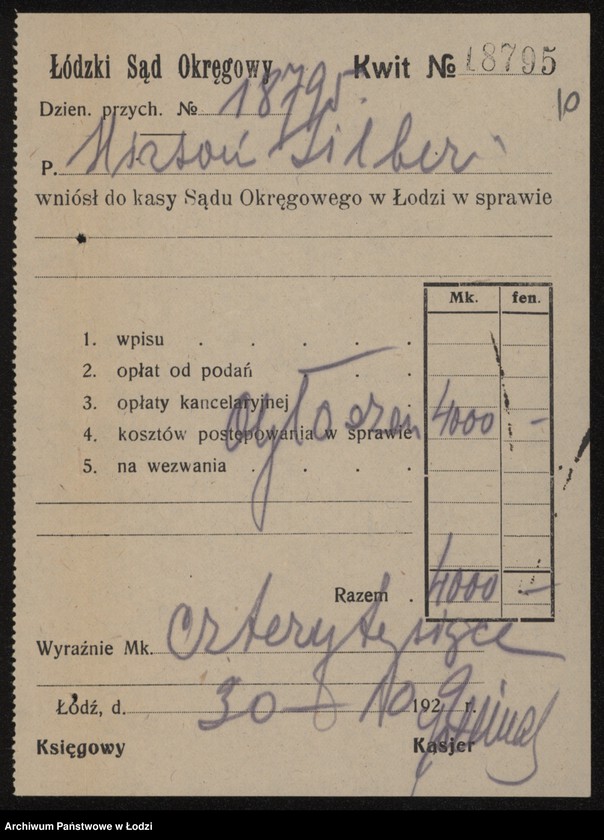 Łódzki Sąd Okręgowy Kwit № 18795
Dzien. przych. № 18795.
10
P. Silber
wniósł do kasy Sądu Okręgowego w Łodzi w sprawie
Mk. fen.
1. wpisu . . . . .
2. opłat od podań . . .
3. opłaty kancelaryjnej .
4. kosztów postępowania w sprawie 4000 -
5. na wezwania . . . .
Razem . 4000 -
Wyraźnie Mk. cztery tysiące
Łódź, d. 30 - 10 192 r.
Księgowy Kasjer
Archiwum Państwowe w Łodzi